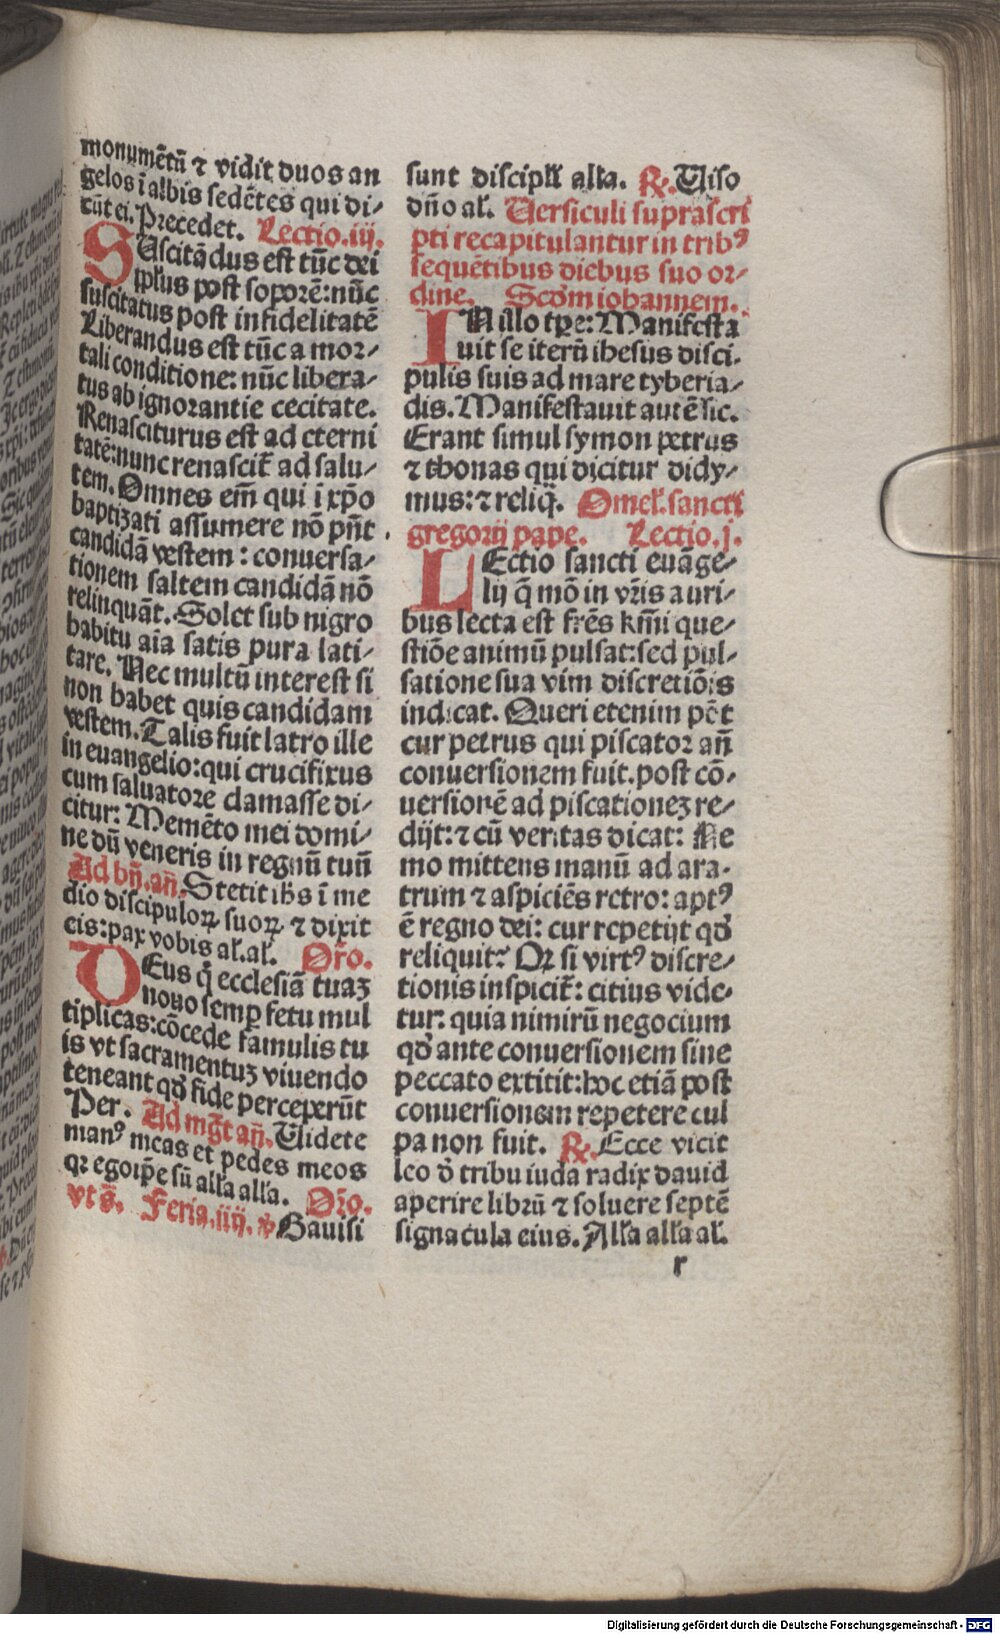 monumētū ⁊ vidit duos an
gelos ī albis sedētes qui di-
cūt ei. Precedet. Lectio.iij.
SUscitādus est tūc dei
iplius post soporē: nūc
suscitatus post infidelitatē
Liberandus est tūc a mor-
tali conditione: nūc libera-
tus ab ignorantie cecitate.
Renasciturus est ad eterni
tatē: nunc renascit̄ ad salu-
tem. Omnes em̄ qui ī xp̄o
baptizati assumere nō pn̄t
candidā vestem: conuersa-
tionem saltem candidā nō
relinquāt. Solet sub nigro
habitu aīa satis pura lati-
tare. Nec multū interest si
non habet quis candidam
vestem. Talis fuit latro ille
in euangelio: qui crucifixus
cum saluatore clamasse di-
citur: Memēto mei domi-
ne dū veneris in regnū tuū
Ad bn̄. an̄. Stetit ihs ī me
dio discipuloꝝ suoꝝ ⁊ dixit
eis: pax vobis al'. al'. Or̄o.
DEus q̄ ecclesiā tuaꝫ
nouo semꝑ fetu mul
tiplicas: cōcede famulis tu
is vt sacramentuꝫ viuendo
teneant qđ fide perceperūt
Per. Ad mḡt an̄. Uidete
manꝰ meas et pedes meos
qꝛ ego ip̄e sū all'a all'a. Or̄o.
vt s̄. Feria.iiij. ℣ Gauisi
sunt discipl'i all'a. ℟. Uiso
dn̄o al'. Uersiculi suprascri
pti recapitulantur in tribꝰ
sequētibus diebus suo or-
dine. Scd̄m iohannem.
IN illo tp̄e: Manifesta
uit se iterū ihesus disci-
pulis suis ad mare tyberia-
dis. Manifestauit autē sic.
Erant simul symon petrus
⁊ thonas qui dicitur didy-
mus: ⁊ reliq̄. Omel'. sancti
gregorij pape. Lectio.j.
LEctio sancti euāge-
lij q̄ mō in vr̄is auri-
bus lecta est fr̄es kr̄mi que-
stiōe animū pulsat: sed pul-
satione sua vim discretiōis
indicat. Queri etenim pōt
cur petrus qui piscator an̄
conuersionem fuit. post cō-
uersionē ad piscationeꝫ re-
dijt: ⁊ cū veritas dicat: Ne
mo mittens manū ad ara-
trum ⁊ aspiciēs retro: aptꝰ
ē regno dei: cur repetijt qđ
reliquit? Qꝛ si virtꝰ discre-
tionis inspicit̄: citius vide-
tur: quia nimirū negocium
qđ ante conuersionem sine
peccato extitit: hoc etiā post
conuersionem repetere cul
pa non fuit. ℟. Ecce vicit
leo đ tribu iuda radix dauid
aperire librū ⁊ soluere septē
signacula eius. All'a all'a al'.
r
Digitalisierung gefördert durch die Deutsche Forschungsgemeinschaft - DFG